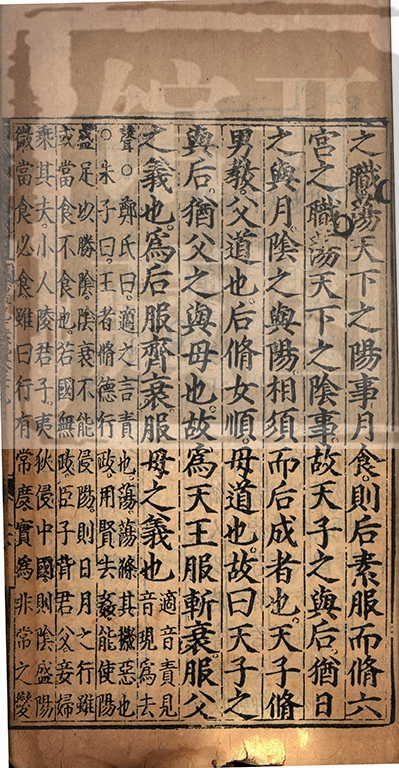 之職蕩天下之陽事月食。則后素服而脩六
宮之職蕩天下之陰事。故天子之與后。猶日
之與月。陰之與陽。相須而后成者也。天子脩
男教。父道也。后脩女順。母道也。故曰天子之
與后。猶父之與母也。故爲天王服斬衰。服父
之義也。爲后服齊衰。服母之義也
適音責見
音現爲去
聲○鄭氏曰。適之言責也。蕩蕩滌其穢惡也
○朱子曰。王者脩德行政。用賢去姦。能使陽
盛足以勝陰。陰衰不能侵陽。則日月之行雖
或當食不食也。若國無政。臣子背君父。妾婦
乘其夫。小人陵君子。夷狄侵中國。則陰盛陽
微。當食必食。雖曰行有常度。實爲非常之變